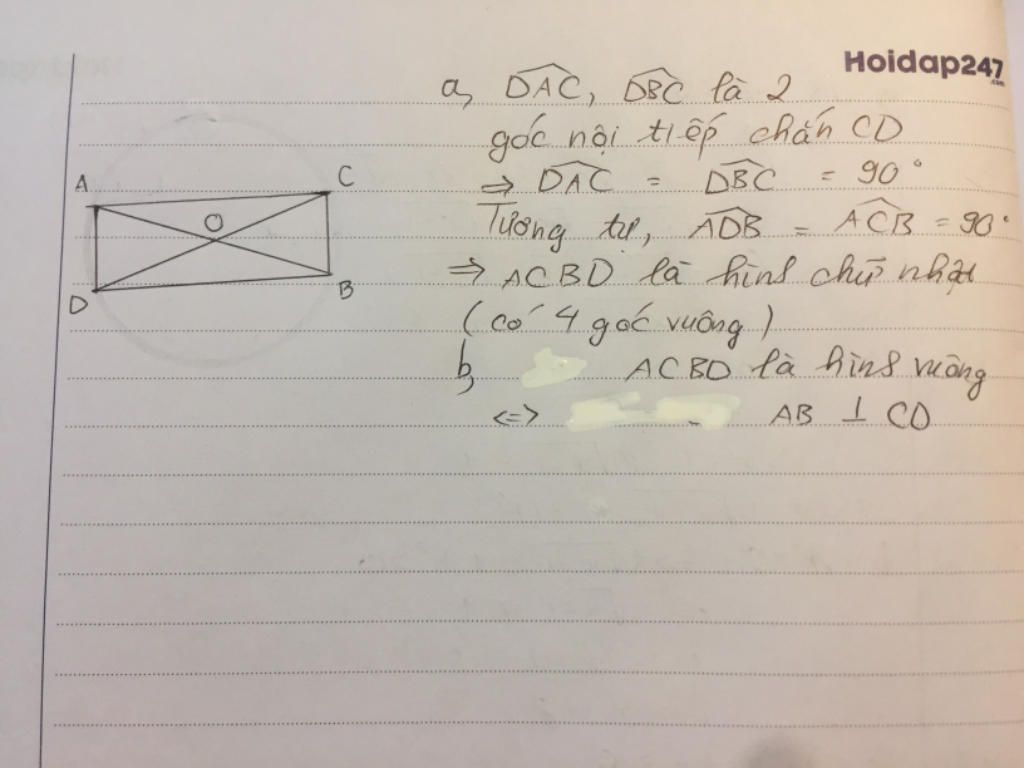 Hoidap247
.com
a, DAC, DBC là 2
góc nội tiếp chắn CD
=> DAC = DBC = 90°
Tương tự, ADB = ACB = 90°
=> ACBD là hình chữ nhật
(có 4 góc vuông)
b, ACBD là hình vuông
<=> AB ⊥ CD
A C
O
D B